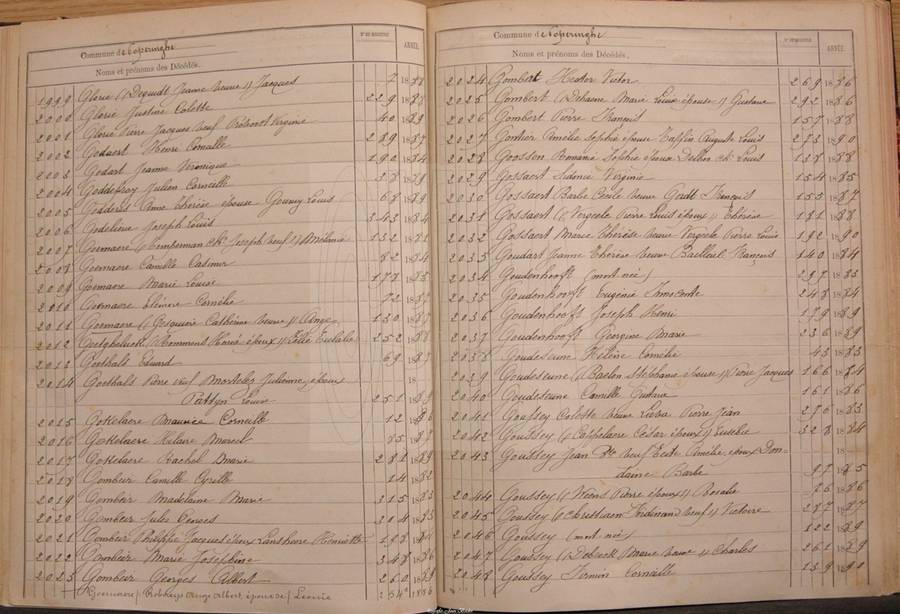 Commune de Poperinghe
Nos et prénoms des Décédés.
ANNÉE
1999 Glorie (/ Dequidt Jeanne veuve // Jacques 2 1888
2000 Glorie Justine Colette 229 1888
2001 Glorie Pierre Jacques veuf Virginie 40 1889
2002 Godaert Henri Cornille 289 1887
2003 Godart Jeanne Véronique 192 1884
2004 Goddefroy Julien Corneille 38 1889
2005 Godderis Anne Thérèse épouse Louis 68 1889
2006 Godelieve Joseph Louis 343 1884
2007 Goemaere (/ Temperman Joseph veuf // Mélanie 132 1881
2008 Goemaere Camille Casimir 82 1884
2009 Goemaere Marie Louise 178 1885
2010 Goemaere Cornélie 72
2011 Goemaere (/ Gesquiere Cathérine veuve // Ange 130 1887
2012 époux // Eulalie 252 1888
2013 Goethals Eduard 69 1883
2014 Goethals Pierre veuf Julienne, époux 18
Pattyn Louise 251 1888
2015 Gokelaere Maurice Corneille 12 1886
2016 Gokelaere Hilaire Marcel 85 1887
2017 Gokelaere Rachel Marie 281 1889
2018 Gombeir Camille Cyrille 14 1882
2019 Gombeir Madelaine Marie 315 1883
2020 Gombeir Jules Georges 304 1885
2021 Gombeir Philippe Jacques époux Lansheere Henriette 188
2022 Gombeir Marie Joséphine 348 1886
2023 Gombeir Georges Albert 260 1888
Goemaere / Ange Albert, époux de / Léonie 254 1886
Commune de Poperinghe
Noms et prénoms des Décédés.
ANNÉE
2024 Gombert Hector Victor 269 1886
2025 Gombert (/ Dehaene Marie Louise épouse // Gustave 292 1886
2026 Gombert Pierre François 157 1888
2027 Gontier Amélie Sophie épouse Auguste Louis 273 1890
2028 Goossen Romanie Sophie épouse Louis 138 1888
2029 Gossaert Sidonie Virginie 154 1885
2030 Gossaert Barbe Cécile veuve Goudt François 155 1887
2031 Gossaert (/ Vergoele Pierre Louis époux // Thérèse 181 1888
2032 Gossaert Marie Thérèse veuve Vergoele Pierre Louis 192 1890
2033 Goudart Jeanne Thérèse veuve Bailleul François 140 1884
2034 Goudenhooft (mort né) 297 1883
2035 Goudenhooft Eugénie Innocente 248 1884
2036 Goudenhooft Joseph Henri 179 1889
2037 Goudenhooft Georgine Marie 236 1889
2038 Goudeseune Hélène Cornélie 43 1883
2039 Goudeseune (/ Baelon Stéphanie épouse // Pierre Jacques 166 1884
2040 Goudeseune Camille Gustave 161 1886
2041 Goussey Colette veuve Pierre Jean 276 1883
2042 Goussey (/ Cappelaere César époux // Eusébie 328 1884
2043 Goussey Jean Bte veuf Amélie, époux Fon- 18
taine Barbe 97 1885
2044 Goussey (/ Pierre époux // Rosalie 76 1886
2045 Goussey (/ Christiaen Ferdinand veuf // Victoire 287 1887
2046 Goussey (mort né) 122 1889
2047 Goussey (/ Debeck Marie veuve // Charles 261 1889
2048 Goussey Firmin Corneille 139 1890